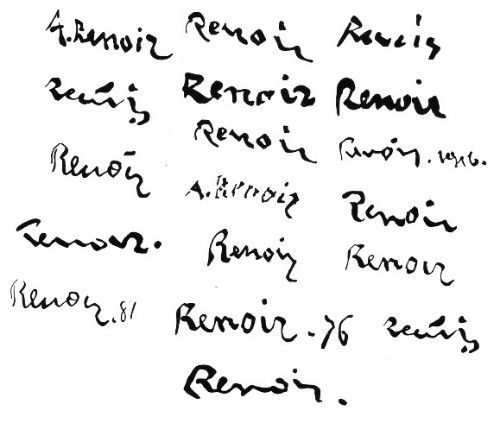 A. Renoir Renoir Renoir
Renoir Renoir Renoir
Renoir Renoir. 1916.
Renoir A. Renoir Renoir
Renoir. Renoir Renoir
Renoir. 81 Renoir. 76 Renoir
Renoir.